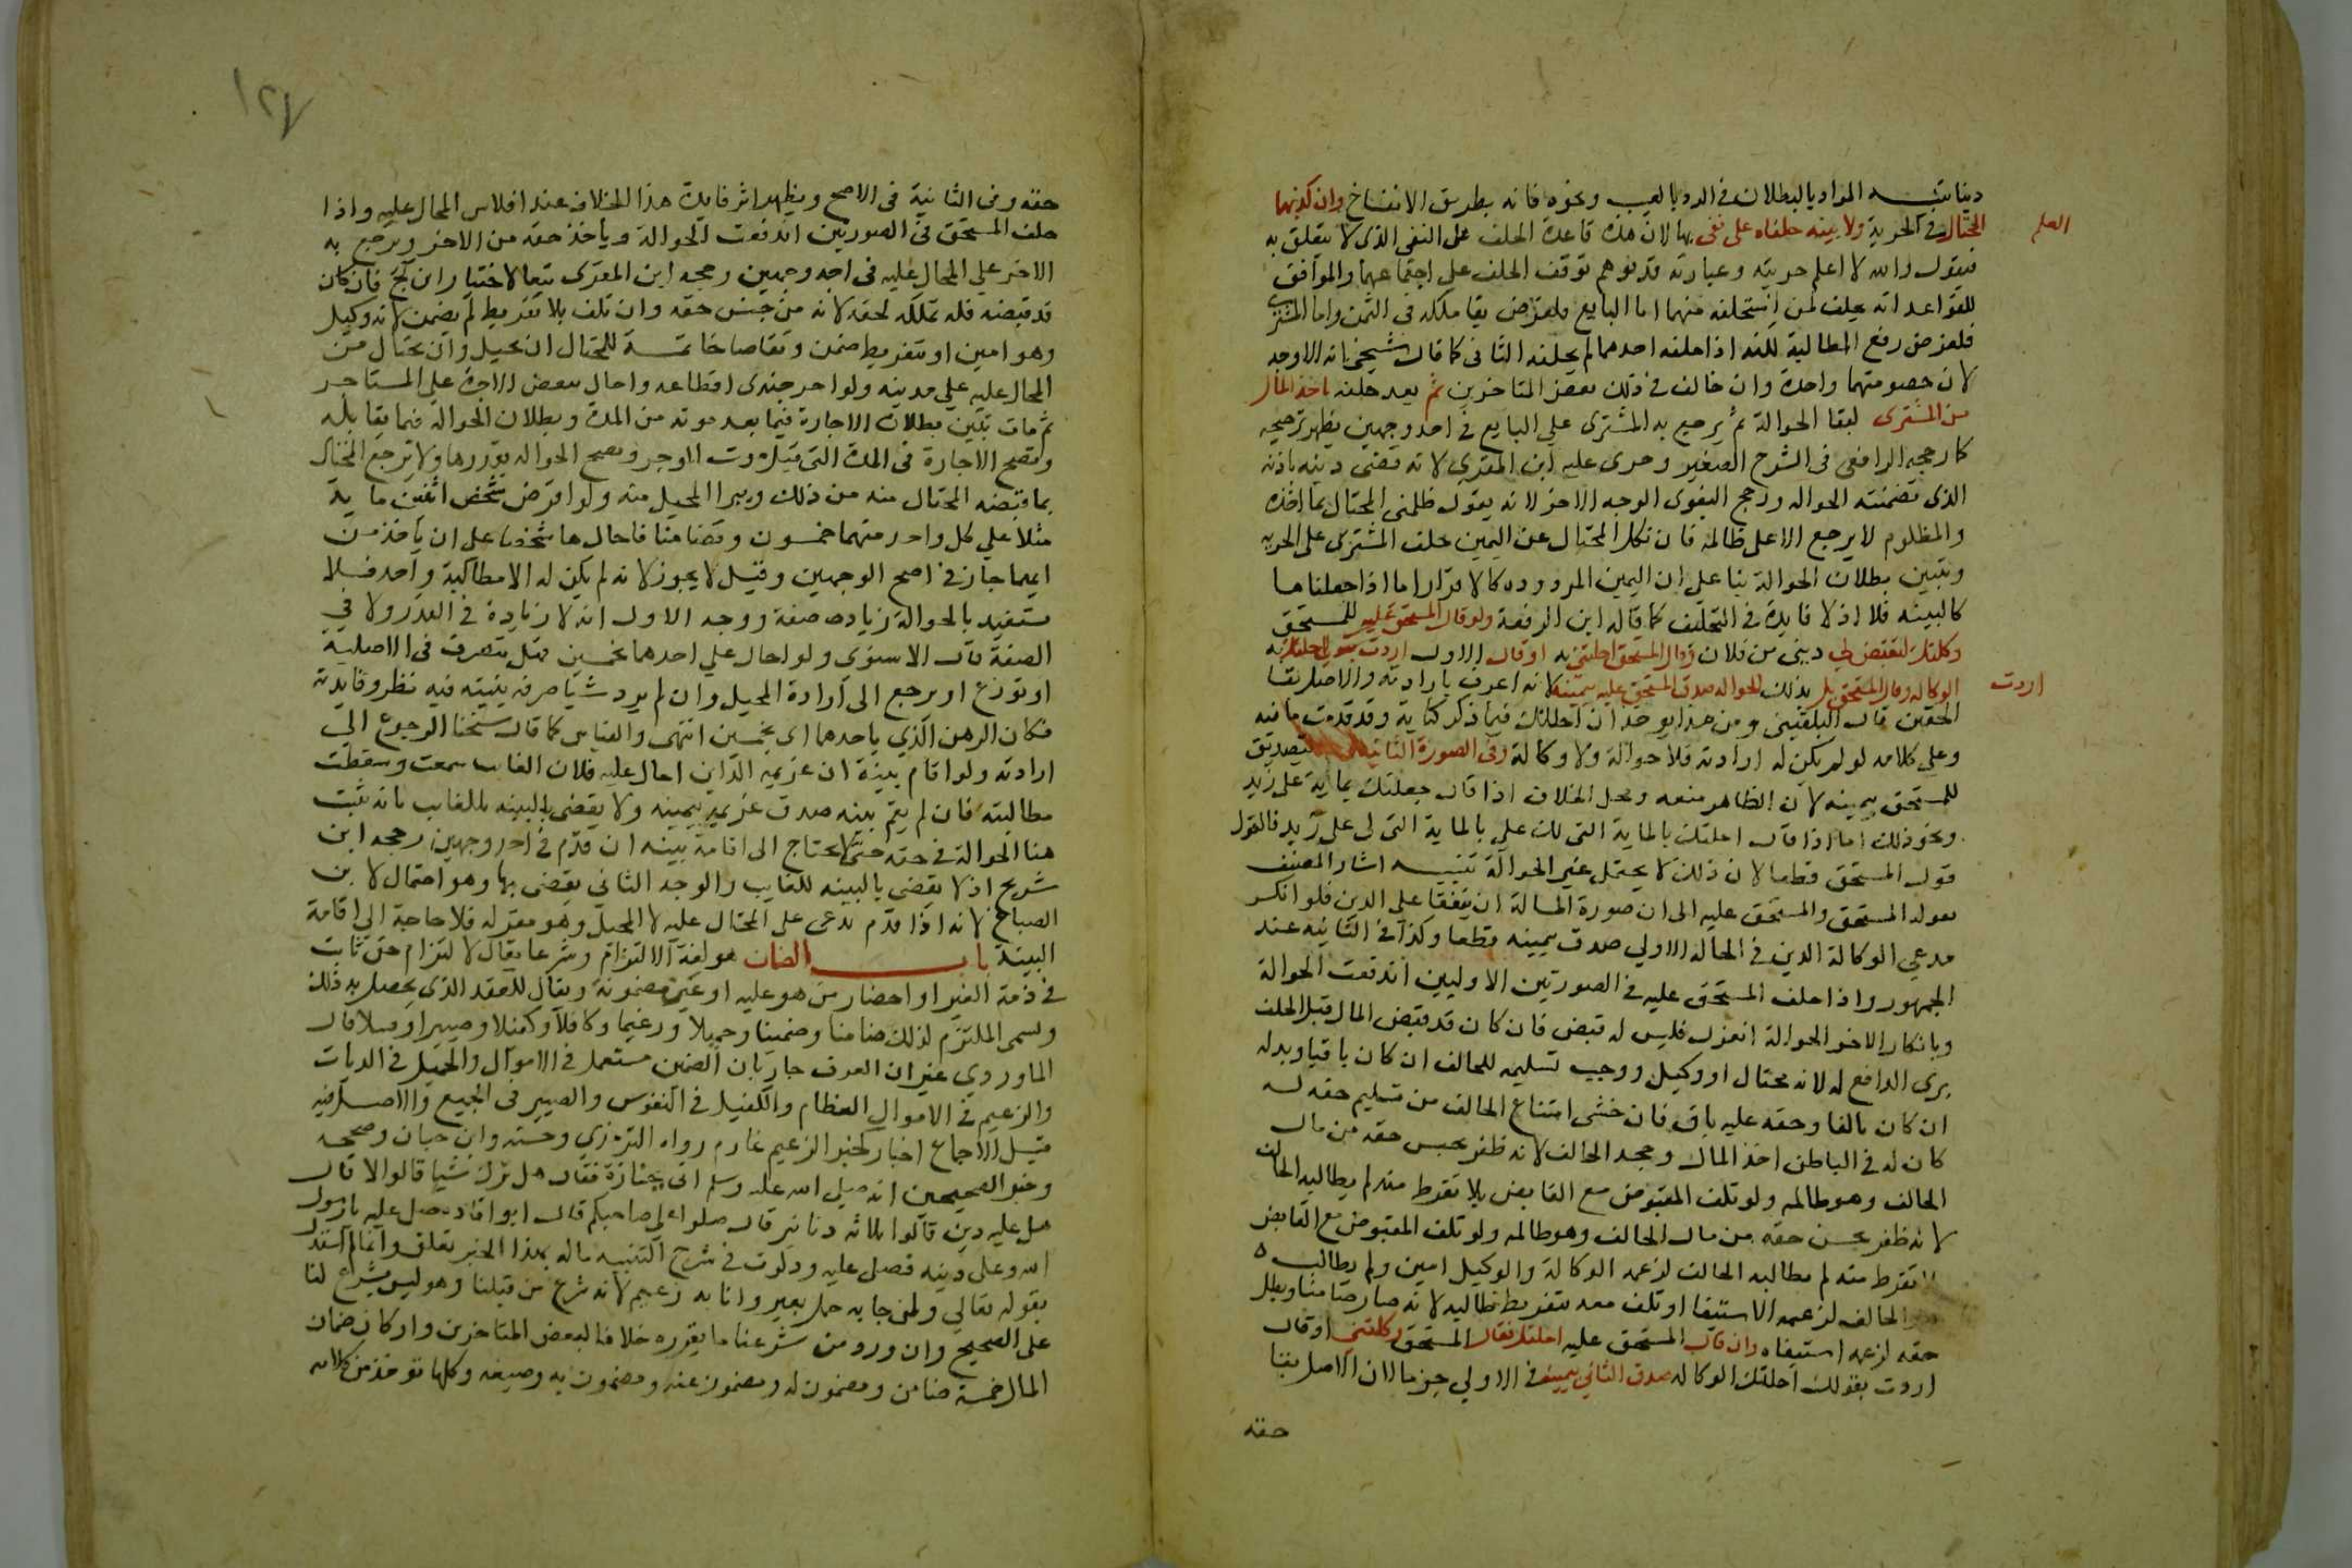 دينا تنبيه المراد بالبطلان في الرد بالعيب ونحوه فانه بطريق الانفساخ وان كذبهما
المحتال في الحرية ولا بينة حلفاه على نفي بها لان هذه قاعدة الحلف على النفي الذي لا يتعلق به
العلم
فيقول والله لا اعلم حريته وعبارته قد توهم توقف الحلف على اجتماعهما والموافق
للقواعد انه يحلف لمن استحلفه منهما اما البايع فلغرض بقا ملكه في الثمن واما المشتري
فلغرض دفع المطالبة لكنه اذا حلفه احدهما لم يحلفه الثاني كما قال شيخي انه الاوجه
لان خصومتهما واحدة وان خالف في ذلك بعض المتاخرين ثم بعد حلفه ياخذ المال
من المشتري لبقا الحوالة ثم يرجع به المشتري على البايع في احد وجهين يظهر ترجيحه
كما رجحه الرافعي في الشرح الصغير وجرى عليه ابن المقري لانه قضى دينه باذنه
الذي تضمنته الحواله ورجح البغوي الوجه الاخر لانه يقول ظلمني المحتال بما اخذه
والمظلوم لا يرجع الا على ظالمه فان نكل المحتال عن اليمين حلف المشتري على الحرية
وتبين بطلان الحوالة بنا على ان اليمين المردوده كالاقرار اما اذا جعلناها
كالبينه فلا اذ لا فايدة في التحليف كما قاله ابن الرفعة ولو قال المستحق عليه للمستحق
وكلتك لتقبض لي ديني من فلان وقال المستحق احلتني به او قال الاول اردت بقولي احلتك به
الوكاله وقال المستحق بل اردت بذلك الحواله صدق المستحق عليه بيمينه لانه اعرف بارادته والاصل بقا
الحقين قال البلقيني ومن هذا يوخذ ان احلتك فيما ذكر كناية وقد قدمت ما فيه
وعلى كلامه لو لم يكن له ارادة فلا حوالة ولا وكالة وفي الصورة الثانية بتصديق
المستحق بيمينه لان الظاهر معه ومحل الخلاف اذا قال جعلتك بماية على زيد
ونحو ذلك اما اذا قال احلتك بالماية التي لك علي بالماية التي لي على زيد فالقول
قول المستحق قطعا لان ذلك لا يحتمل غير الحوالة تنبيه اشار المصنف
بقوله المستحق والمستحق عليه الى ان صورة المسالة ان يتفقا على الدين فلو انكر
مدعي الوكالة الدين في الحالة الاولي صدق بيمينه قطعا وكذا في الثانيه عند
الجمهور واذا حلف المستحق عليه في الصورتين الاوليين اندفعت الحوالة
وبانكار الاخر الحوالة انعزل فليس له قبض فان كان قد قبض المال قبل الحلف
برى الدافع له لانه محتال او وكيل ووجب تسليمه للحالف ان كان باقيا وبدله
ان كان تالفا وحقه عليه باق فان خشي امتناع الحالف من تسليم حقه له
كان له في الباطن اخذ المال وجحد الحالف لانه ظفر بجنس حقه من مال
الحالف وهو ظالمه ولو تلف المقبوض مع القابض بلا تفرط منه لم يطالبه الحالف
لانه ظفر بجنس حقه من مال الحالف وهو ظالمه ولو تلف المقبوض مع القابض
بلا تفرط منه لم يطالبه الحالف لزعمه الوكالة والوكيل امين ولم يطالب
هو الحالف لزعمه الاستيفا او تلف معه بتفريط طالبه لانه صار ضامنا وبطل
حقه لزعمه استيفاه وان قال المستحق عليه احلتك فقال المستحق وكلتني او قال
اردت بقولك احلتك الوكاله صدق الثاني بيمينه في الاولي جزما لان الاصل بقا
حقه
١٢٧
حقه وفي الثانية في الاصح ويظهر اثر فايدة هذا الخلاف عند افلاس المحال عليه واذا
حلف المستحق في الصورتين اندفعت الحوالة وياخذ حقه من الاخر ويرجع به
الاخر علي المحال عليه في احد وجهين رجحه ابن المقري تبعا لاختيار ابن كج فان كان
قد قبضه فله تملكه لحقه لانه من جنس حقه وان تلف بلا تفريط لم يضمن لانه وكيل
وهو امين او بتفريط ضمن وتقاصا خاتمة للمحتال ان يحيل وان يحتال من
المحال عليه علي مدينه ولو اجر جندي اقطاعه واحال ببعض الاجرة علي المستاجر
ثم مات تبين بطلان الاجارة فيما بعد موته من المدة وبطلان الحوالة فيما يقابله
وتصح الاجارة في المدة التي قبل موت الاجر وتصح الحواله بقدرها ولا يرجع المحتال
بما قبضه المحتال منه من ذلك ويبرا المحيل منه ولو اقرض شخص اثنين ماية
مثلا علي كل واحد منهما خمسون وتضامنا فاحال بها شخصا على ان ياخذ من
ايهما جاز في اصح الوجهين وقيل لا يجوز لانه لم يكن له الا مطالبة واحد فلا
يستفيد بالحوالة زيادة صفة ووجه الاول انه لا زيادة في القدر ولا في
الصفة قال الاسنوي ولو احال علي احدهما بخمسين فهل تنصرف في الاصلية
او توزع او يرجع الى ارادة المحيل وان لم يرد شيا صرفه بنيته فيه نظر وفايدته
فكان الرهن الذي باحدهما اي بخمسين انتهى والقياس كما قال شيخنا الرجوع الى
ارادته ولو اقام بينة ان غريمه الداين احال عليه فلان الغايب سمعت وسقطت
مطالبته فان لم يقم بينه صدق غريمه بيمينه ولا يقضى بالبينه للغايب بانه تثبت
هنا الحوالة في حقه حتى لا يحتاج الى اقامة بينه ان قدم في احد وجهين رجحه ابن
شريح اذ لا يقضي بالبينه للغايب والوجه الثاني يقضى بها وهو احتمال لابن
الصباغ لانه اذا قدم يدعي على المحتال عليه لا المحيل وهو مقر له فلا حاجة الى اقامة
البينة باب الضمان هو لغة الالتزام وشرعا يقال لالتزام حق ثابت
في ذمة الغير او احضار من هو عليه او عين مضمونة ويقال للعقد الذي يحصل به ذلك
ويسمى الملتزم لذلك ضامنا وضمينا وحميلا وزعيما وكافلا وكفيلا وصبيرا وقبيلا قال
الماوردي غير ان العرف جار بان الضمين مستعمل في الاموال والحميل في الديات
والزعيم في الاموال العظام والكفيل في النفوس والصبير في الجميع والاصل فيه
قبل الاجماع اخبار كخبر الزعيم غارم رواه الترمذي وحسنه وابن حبان وصححه
وخبر الصحيحين انه صلى الله عليه وسلم اتي بجنازة فقال هل ترك شيا قالوا لا قال
هل عليه دين قالوا ثلاثة دنانير قال صلوا علي صاحبكم قال ابو قتادة صل عليه يا رسول
الله وعلي دينه فصلى عليه وذكرت في شرح التنبيه ماله بهذا الخبر تعلق وانما لم استدل
بقوله تعالى ولمن جا به حمل بعير وانا به زعيم لانه شرع من قبلنا وهو ليس بشرع لنا
على الصحيح وان ورد من شرعنا ما يقرره خلافا لبعض المتاخرين واركان ضمان
المال خمسة ضامن ومضمون له ومضمون عنه ومضمون به وصيغه وكلها توخذ من كلامه